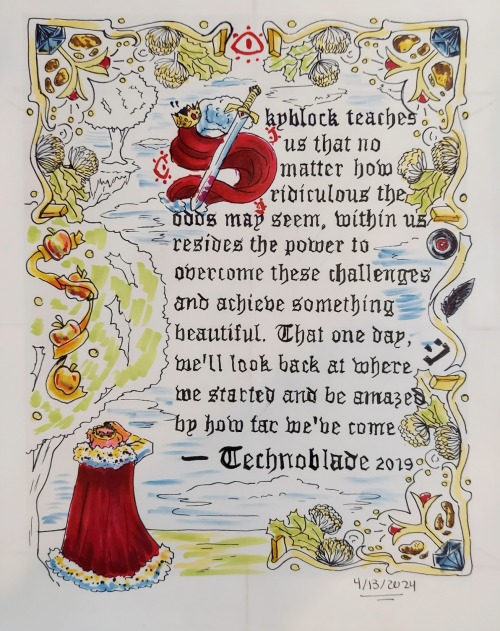 Skyblock teaches
us that no
matter how
ridiculous the
odds may seem, within us
resides the power to
overcome these challenges
and achieve something
beautiful. That one day,
we'll look back at where
we started and be amazed
by how far we've come
— Technoblade 2019
4/13/2024